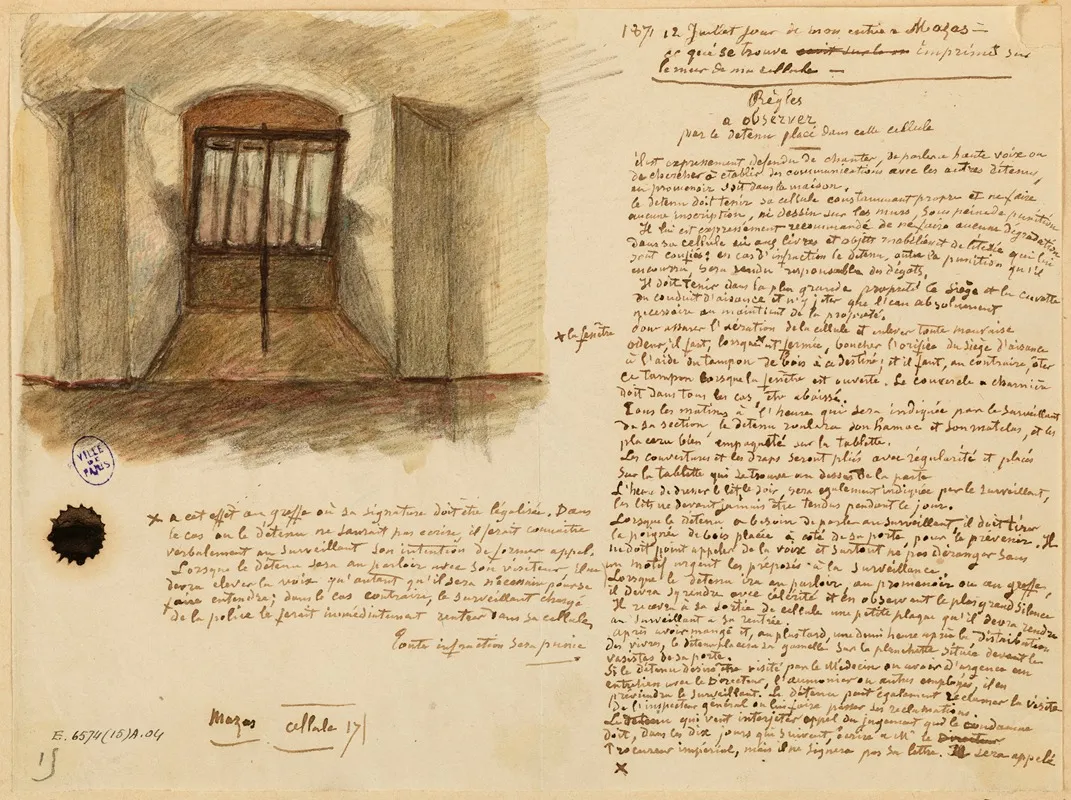 1871 12 Juillet jour de mon entrée a Mazas —
ce qui se trouve écrit sur la imprimé sur
le mur de ma cellule —
Règles
a observer
par le detenu placé dans cette cellule
il est expressement defendu de chanter, de parler a haute voix ou
de chercher à établir des communications avec les autres détenus,
au promenoir soit dans la maison.
le detenu doit tenir sa cellule constamment propre et ne faire
aucune inscription, ni dessin sur les murs, sous peine de punition
Il lui est expressement recommandé de ne faire aucune dégradation
dans sa cellule ou aux livres et objets mobiliers de literie qui lui
sont confiés; en cas d'infraction le detenu, outre la punition qu'il
encourra, sera rendu responsable des dégats.
Il doit tenir dans la plus grande propreté le siège et la cuvette
du conduit d'aisance et n'y jeter que l'eau absolument
necessaire au maintient de la propreté.
pour assurer l'aération de la cellule et enlever toute mauvaise
x la fenêtre
odeur, il faut, lorsque x est fermée, boucher l'orifice du siège d'aisance
à l'aide du tampon de bois à ce destiné; et il faut, au contraire, ôter
ce tampon lorsque la fenêtre est ouverte. Le couvercle a charnière
doit dans tous les cas être abaissé.
Tous les matins à l'heure qui sera indiquée par le surveillant
de sa section le detenu roulera son hamac et son matelas, et les
placera bien empaqueté sur la tablette.
Les couvertures et les draps seront pliés avec régularité et placés
sur la tablette qui se trouve au dessus de la porte
L'heure de dresser le lit le soir, sera egalement indiquée par le surveillant,
les lits ne devant jamais être tendus pendant le jour.
Lorsque le detenu a besoin de parler au surveillant il doit tirer
la poignée de bois placée à côté de sa porte, pour le prévenir. Il
ne doit point appeler de la voix et surtout ne pas déranger sans
un motif urgent les préposés à la surveillance.
Lorsque le detenu ira au parloir, au promenoir ou au greffe,
il devra s'y rendre avec célérité et en observant le plus grand silence
Il recevra à sa sortie de cellule une petite plaque qu'il devra rendre
au surveillant a sa rentrée.
Après avoir mangé et, au plus tard, une demi heure après la distribution
des vivres, le détenu placera sa gamelle sur la planchette située devant le
vasistas de sa porte.
Si le détenu désire être visité par le Médecin ou avoir d'urgence un
entretien avec le Directeur, l'aumonier ou autres employés, il en
previendra le surveillant. Le détenu peut également réclamer la visite
de l'inspecteur général ou lui faire passer ses réclamations.
Le detenu qui veut interjeter appel du jugement qui le condamne
doit, dans les dix jours qui suivent, écrire a Mr le Directeur
Procureur impérial, mais il ne signera pas sa lettre. Il sera appelé
x
x a cet effet au greffe ou sa signature doit être légalisée. Dans
le cas ou le détenu ne saurait pas ecrire, il ferait connaitre
verbalement au surveillant son intention de former appel.
Lorsque le detenu sera au parloir avec son visiteur, il ne
devra elever la voix qu'autant qu'il sera nécessaire pour se
faire entendre; dans le cas contraire, le surveillant chargé
de la police le ferait immédiatement rentrer dans sa cellule,
Toute infraction sera punie
Mazas cellule 17
VILLE
DE
PARIS
E.6574(15)A.04
15